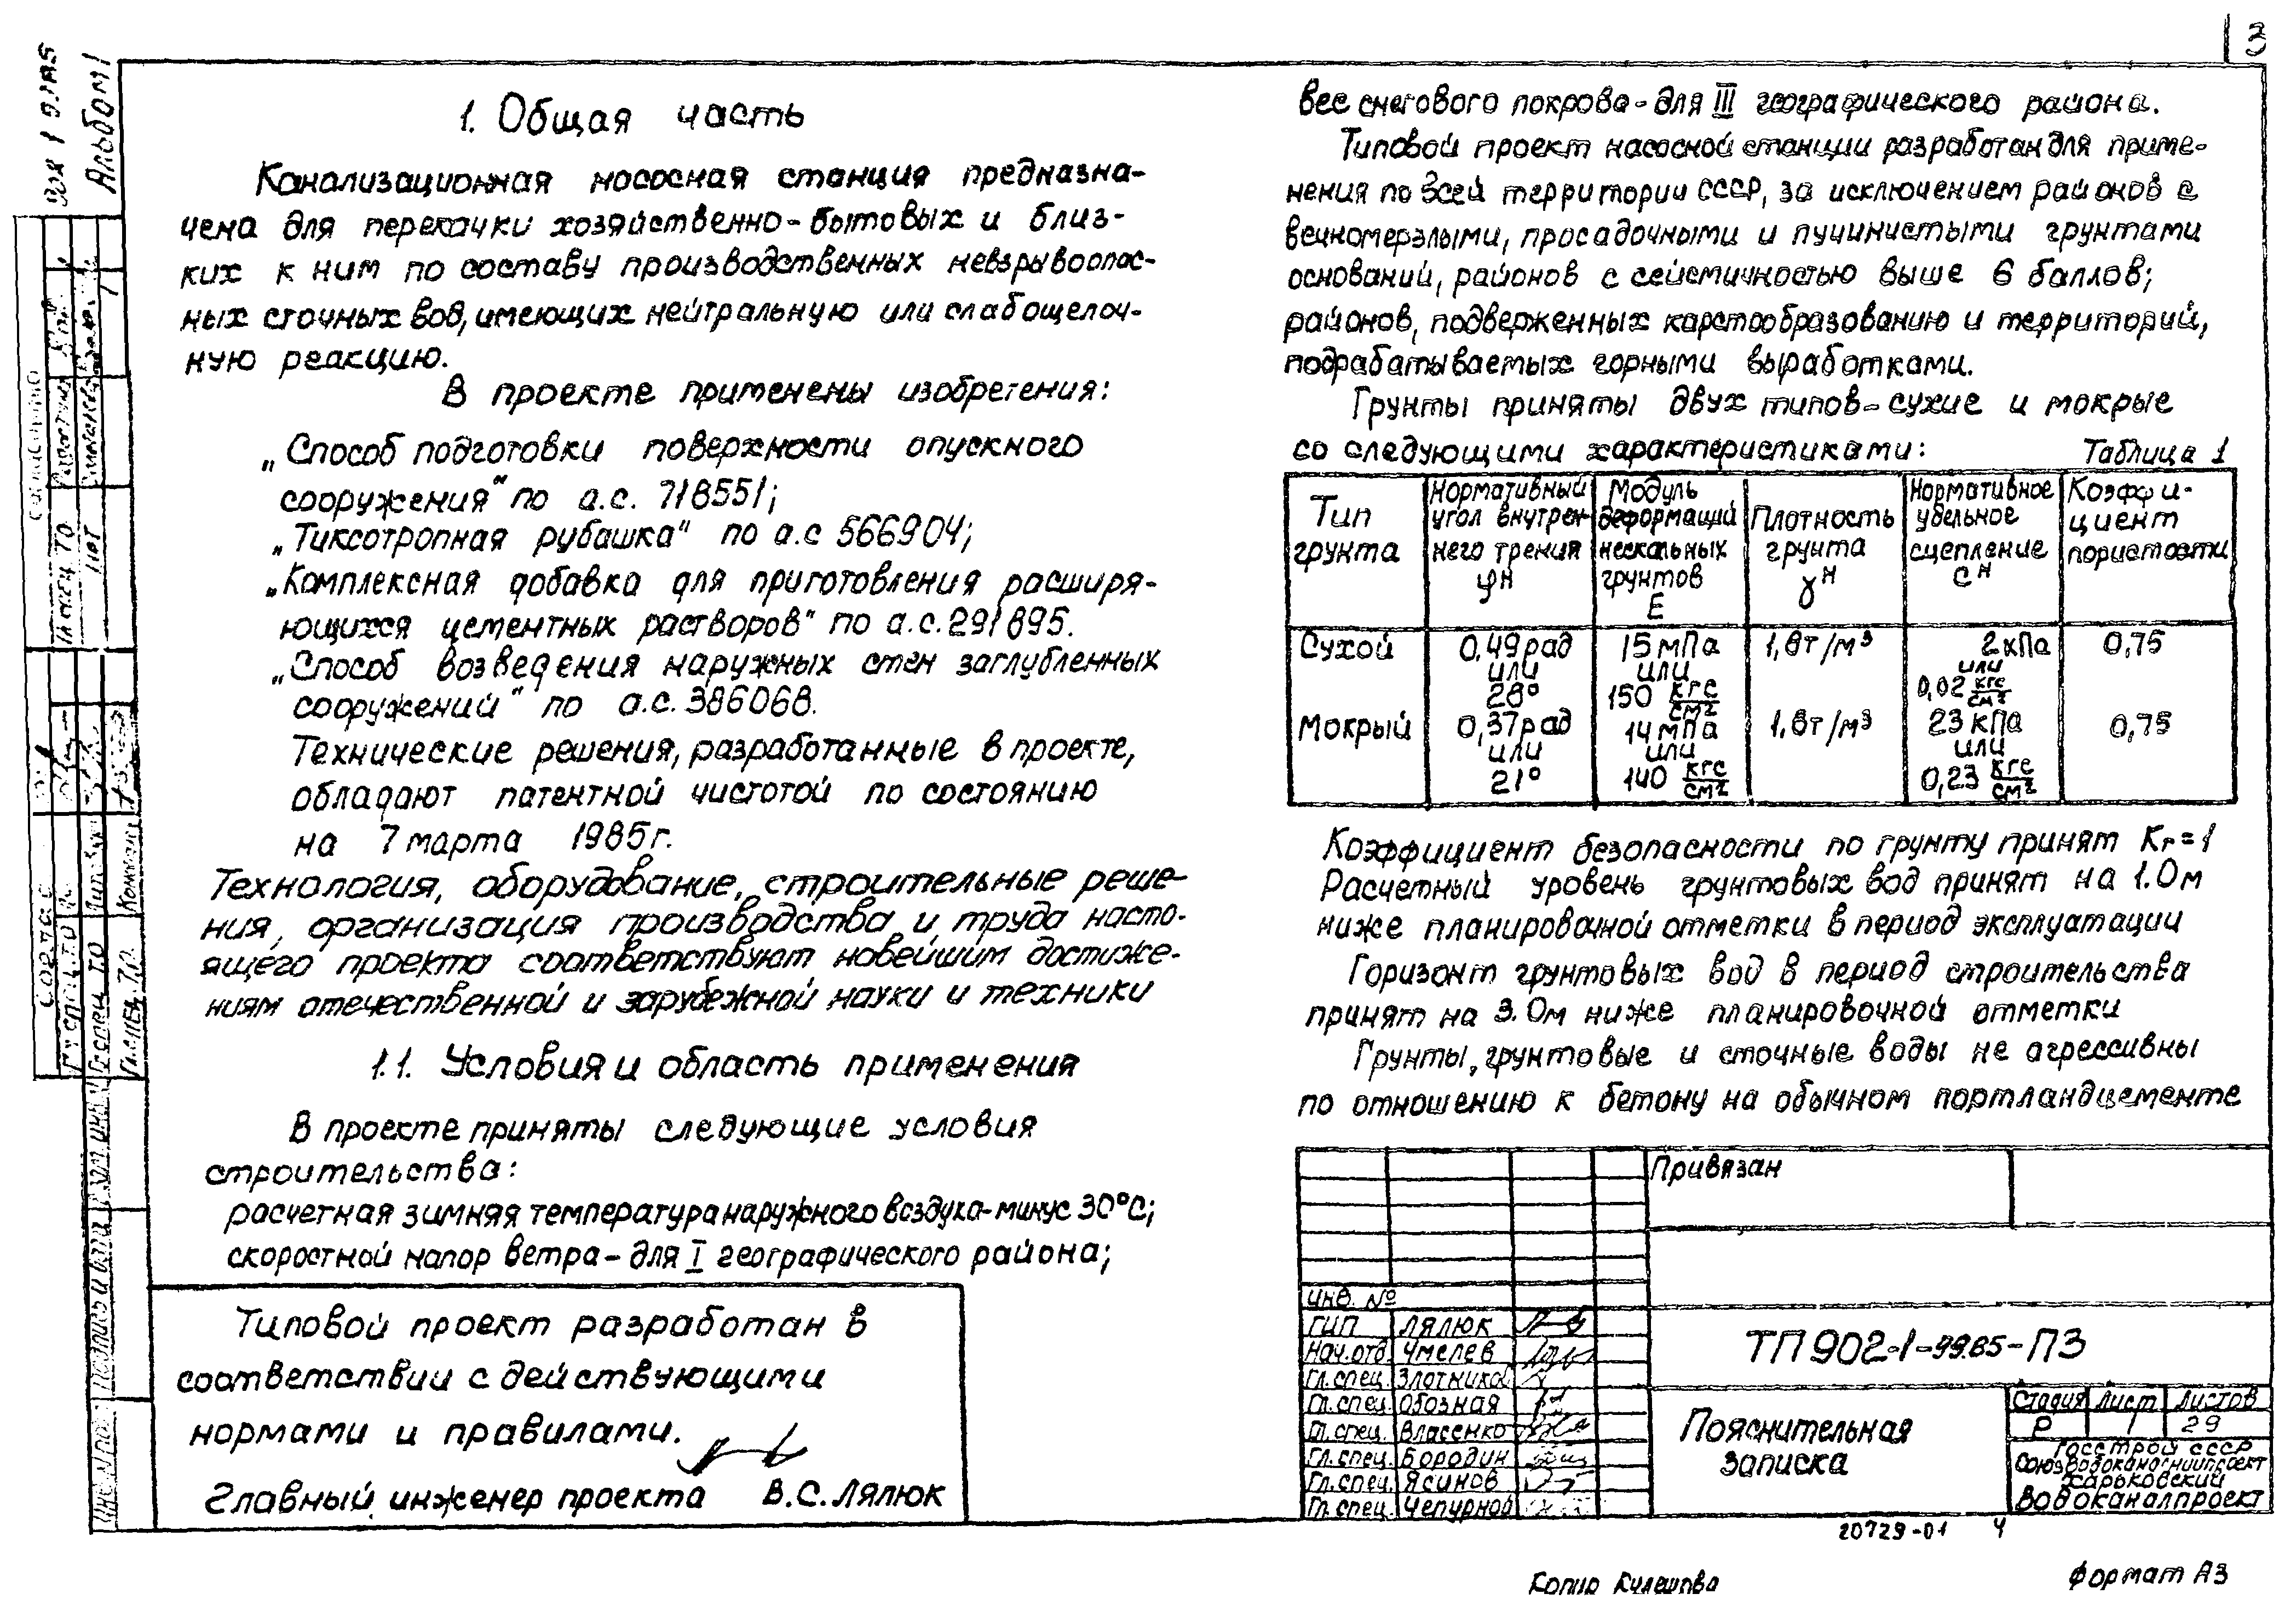 3
Альбом 1
1. Общая часть
Канализационная насосная станция предназна-
чена для перекачки хозяйственно-бытовых и близ-
ких к ним по составу производственных невзрывоопас-
ных сточных вод, имеющих нейтральную или слабощелоч-
ную реакцию.
В проекте применены изобретения:
„Способ подготовки поверхности опускного
сооружения" по а.с. 718551;
„Тиксотропная рубашка" по а.с 566904;
„Комплексная добавка для приготовления расширя-
ющихся цементных растворов" по а.с. 291895.
„Способ возведения наружных стен заглубленных
сооружений" по а.с. 386068.
Технические решения, разработанные в проекте,
обладают патентной чистотой по состоянию
на 7 марта 1985г.
Технология, оборудование, строительные реше-
ния, организация производства и труда насто-
ящего проекта соответствуют новейшим достиже-
ниям отечественной и зарубежной науки и техники
1.1. Условия и область применения
В проекте приняты следующие условия
строительства:
расчетная зимняя температура наружного воздуха-минус 30°С;
скоростной напор ветра-для I географического района;
Типовой проект разработан в
соответствии с действующими
нормами и правилами.
Главный инженер проекта В.С. Лялюк
вес снегового покрова-для III географического района.
Типовой проект насосной станции разработан для приме-
нения по всей территории СССР, за исключением районов с
вечномерзлыми, просадочными и пучинистыми грунтами
оснований, районов с сейсмичностью выше 6 баллов;
районов, подверженных карстообразованию и территорий,
подрабатываемых горными выработками.
Грунты приняты двух типов-сухие и мокрые
со следующими характеристиками: Таблица 1
Тип грунта
Нормативный угол внутрен- него трения φн
Модуль деформации нескальных грунтов E
Плотность грунта γн
Нормативное удельное сцепление Cн
Коэффи- циент пористости
Сухой 0,49 рад или 28° 15 мПа или 150 кгс/см² 1,8т/м³ 2 кПа или 0,02 кгс/см² 0,75
Мокрый 0,37 рад или 21° 14 мПа или 140 кгс/см² 1.8т/м³ 23 кПа или 0,23 кгс/см² 0,75
Коэффициент безопасности по грунту принят Kг=1
Расчетный уровень грунтовых вод принят на 1.0м
ниже планировочной отметки в период эксплуатации
Горизонт грунтовых вод в период строительства
принят на 3.0м ниже планировочной отметки
Грунты, грунтовые и сточные воды не агрессивны
по отношению к бетону на обычном портландцементе
Привязан
инв. №
ГИП Лялюк
Нач.отд. Чмелев
Гл.спец. Злотников
Гл.спец. Обозная
Гл.спец. Власенко
Гл.спец. Бородин
Гл.спец. Ясинов
Гл.спец. Чепурной
ТП 902-1-99.85-ПЗ
Пояснительная
записка
Стадия Лист Листов
Р 1 29
Госстрой СССР
Союзводоканалниипроект
Харьковский
Водоканалпроект
20729-01 4
Копир Кулешова
Формат А3